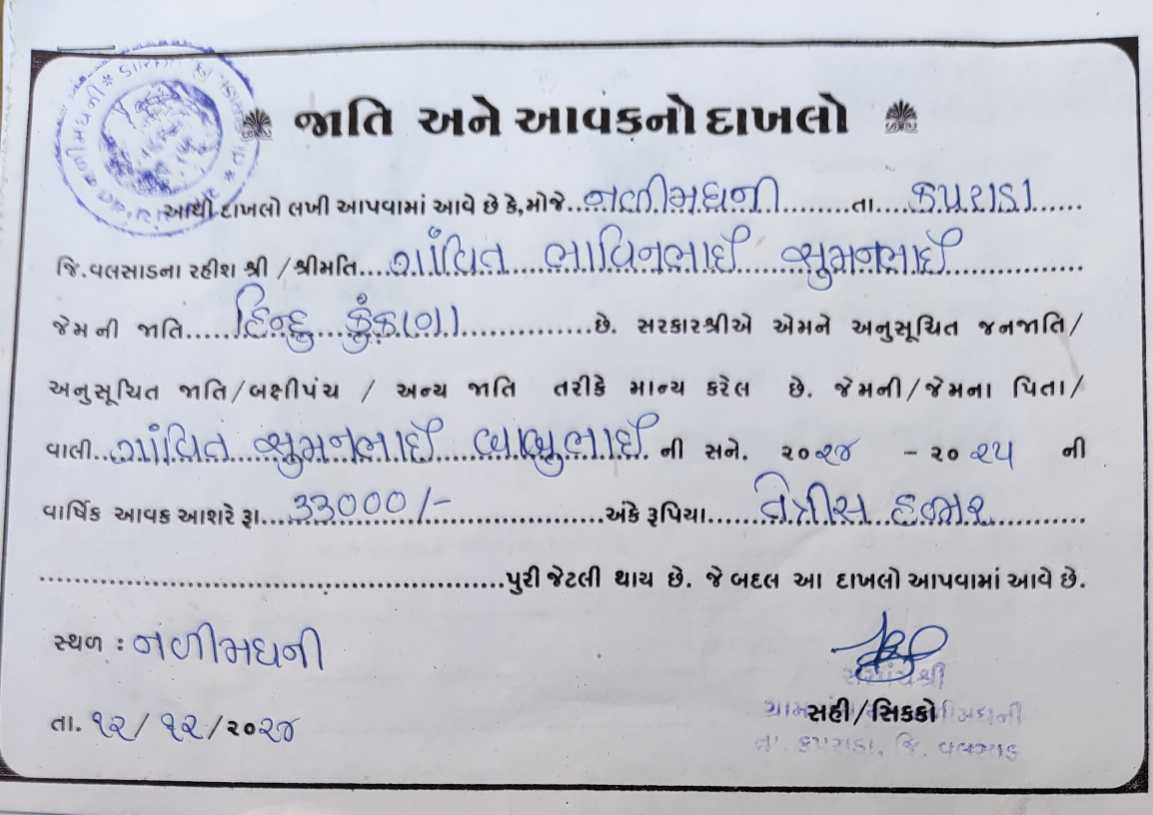 જાતિ અને આવકનો દાખલો
આથી દાખલો લખી આપવામાં આવે છે કે, મોજે..નળીમધની.........તા....કપરાડા......
જિ.વલસાડના રહીશ શ્રી /શ્રીમતિ....ગાંવિત....ભાવિનભાઈ....સુમનભાઈ..............
જેમની જાતિ......હિન્દુ...કુંકણા..............છે. સરકારશ્રીએ એમને અનુસૂચિત જનજાતિ/
અનુસૂચિત જાતિ/બક્ષીપંચ / અન્ય જાતિ તરીકે માન્ય કરેલ છે. જેમની/જેમના પિતા/
વાલી..ગાંવિત...સુમનભાઈ...બાબુભાઈ. ની સને. ૨૦૨૪ - ૨૦ ૨૫ ની
વાર્ષિક આવક આશરે રૂા....33000/-..................અંકે રૂપિયા.......તેત્રીસ..હજાર............
..............................................પુરી જેટલી થાય છે. જે બદલ આ દાખલો આપવામાં આવે છે.
સ્થળ : નળીમધની
સરપંચશ્રી
સહી/સિક્કો
તા. ૧૨/ ૧૨/૨૦૨૪
તા. કપરાડા, જિ. વલસાડ